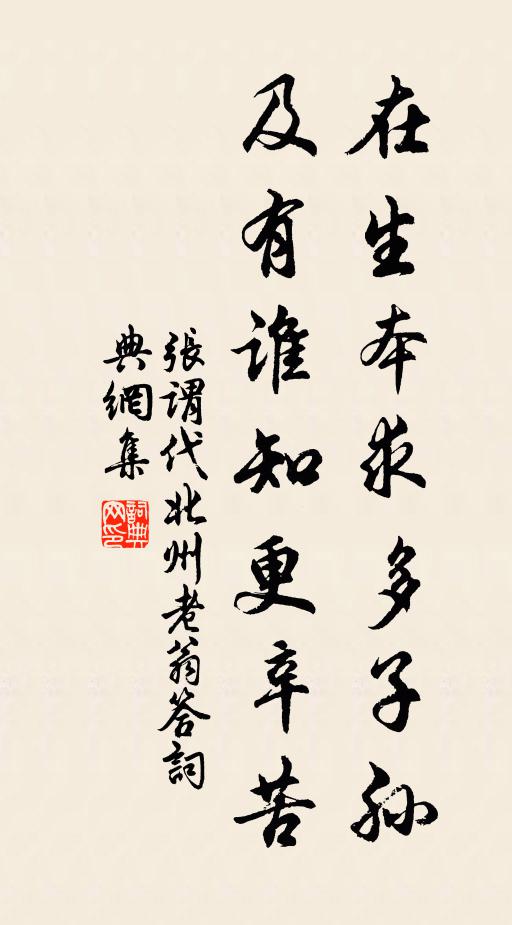 在生本求多子孫
及有誰知更辛苦
張謂代北州老翁答詞
典網集
詞典网印